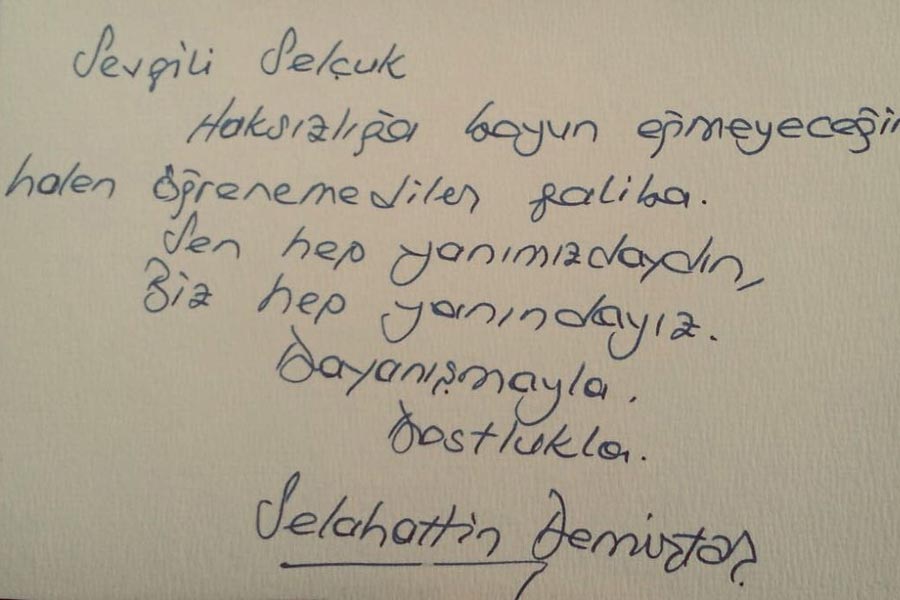 Sevgili Selçuk
Haksızlığa boyun eğmeyeceğin
halen öğrenemediler galiba.
Sen hep yanımızdaydın,
Biz hep yanındayız.
Dayanışmayla.
Dostlukla.
Selahattin Demirtaş